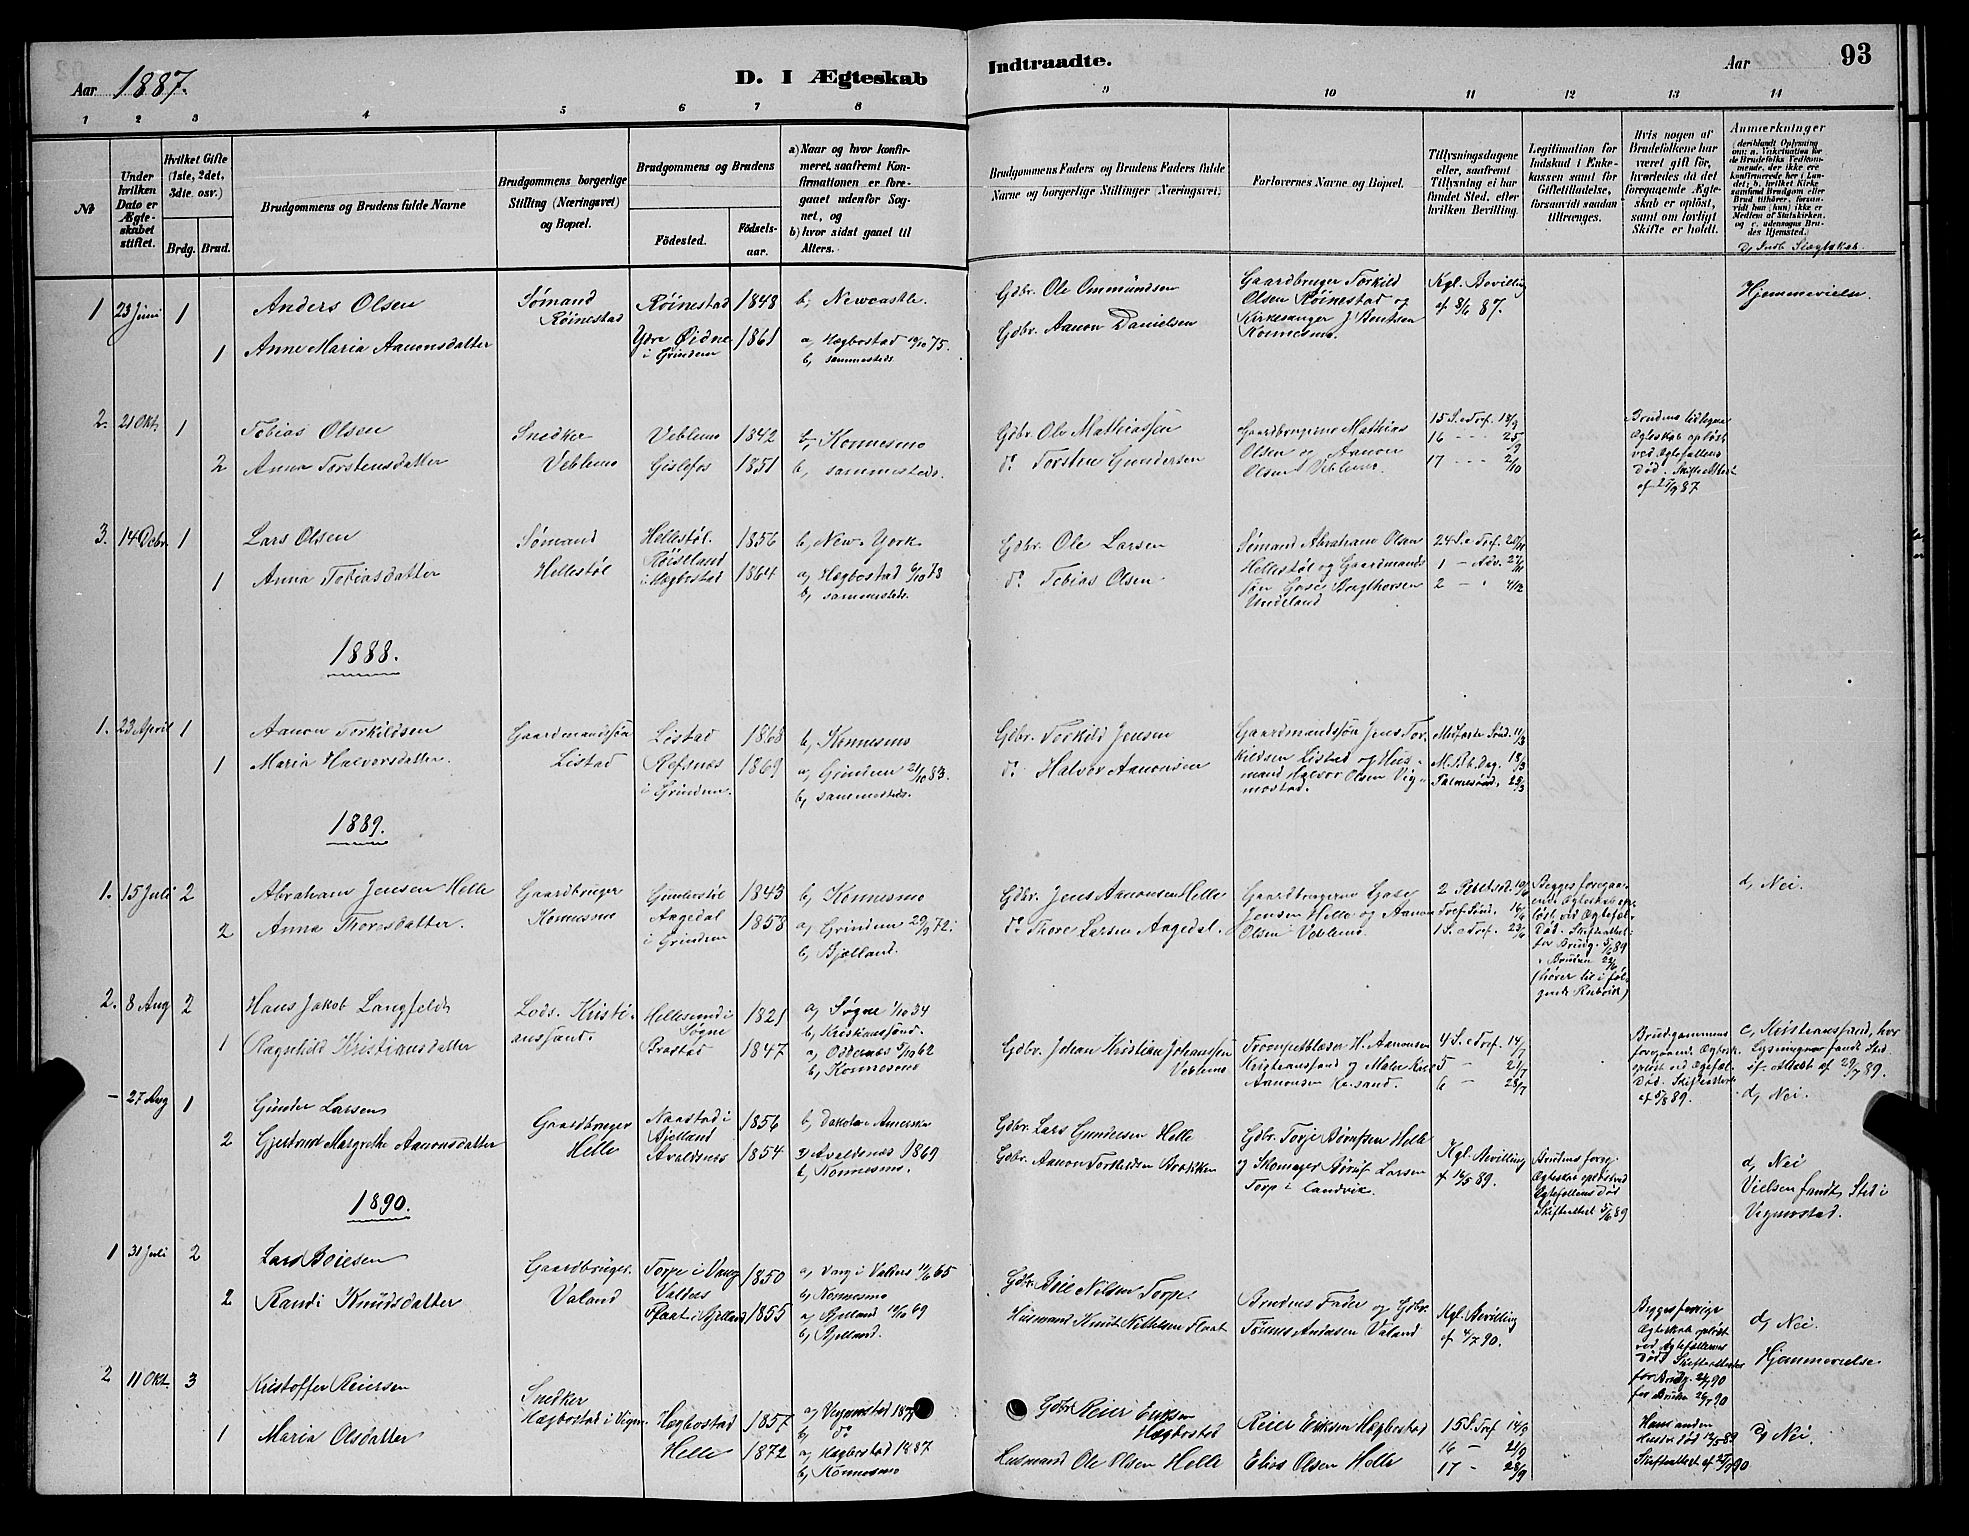 Aar 1887.
D. I Ægteskab
Indtraadte.
Aar
93
1 2 3 4 5 6 7 8 9 10 11 12 13 14
№
Under hvilken Dato er Ægteskabet stiftet.
Hvilket Gifte (1ste, 2det, 3die osv.)
Brdg. Brud.
Brudgommens og Brudens fulde Navne
Brudgommens borgerlige Stilling (Næringsvei) og Bopæl.
Brudgommens og Brudens
Fødested.
Fødselsaar.
a) Naar og hvor konfirmeret, saafremt Konfirmationen er foregaaet udenfor Sognet, og
b) hvor sidst gaaet til Alters.
Brudgommens Faders og Brudens Faders fulde Navne og borgerlige Stillinger (Næringsvei).
Forlovernes Navne og Bopæl.
Tillysningsdagene eller, saafremt Tillysning ei har fundet Sted, efter hvilken Bevilling.
Legitimation for Indskud i Enkekassen samt for Giftetilladelse, forsaavidt saadan tiltrænges.
Hvis nogen af Brudefolkene har været gift før, hvorledes da det foregaaende Ægteskab er opløst, samt om lovligt Skifte er holdt.
Anmærkninger
1 23 Juni 1 Anders Olsen Sømand Røinestad Røinestad 1848 b, Newcastle. Gdbr. Ole Ommundsen Gaardbruger Torkild Olsen Røinestad og Kirkesanger J. Bentsen Konnesmo. Kgl. Bevilling af 8/6 87. Hjemmevielse.
1 Anne Maria Aanonsdatter Ydre Øidne i Grindem 1861 a, Hægbostad 10/10 75. b, sammesteds. Gdbr. Aanon Danielsen
2. 21 Okt. 1 Tobias Olsen Snedker Veblemo Veblemo 1842 b, Konnesmo Gdbr. Ole Mathiassen Gaardbrugerne Mathias Olsen og Aanon Olsen Veblemo. 15 S. e Tref. 18/9 16 - - 25/9 17 - - 2/10 Brudens tidligere Ægteskab opløst ved Ægtefællens Død. Skifteattest af 25/9 87
2 Anna Torstensdatter Gislefos 1851 b, sammesteds. do Torsten Gundersen
3. 14 Debr. 1 Lars Olsen Sømand Hellestøl Hellestøl 1856 b, New-York Gdbr. Ole Larsen Sømand Abraham Olsen Hellestøl og Gaardmands Søn Bragthorsen Undeland 24 S. e Tref. 20/11 1 - Adv. 27/11 2 - " 4/12
1 Anna Tobiasdatter Røistland i Hægbostad 1864 a, Hægbostad b, sammesteds. do Tobias Olsen.
1888.
1. 23 April 1 Aanon Torkildsen Gaardmandssøn Listad Listad 1868 b, Konnesmo Gdbr. Torkild Jensen Gaardmandssøn Jens Torkildsen Listad og Husmand Halvor Olsen Vigmostad. Midfaste Sønd. 11/3 M. B. Dag. 18/3 Palmesønd. 25/3
1 Maria Halvorsdatter. Refsnes i Grindem. 1869 a, Grindem 21/10 83. b, sammesteds. do Halvor Aanonsen
1889.
1. 15 Juli 2 Abraham Jensen Helle Gaardbruger Konnesmo 1843 b, Konnesmo Gdbr. Jens Aanonsen Helle Gaardbrugerne Jensen Helle og Aanon Olsen Veblemo. 2 Tref. Sønd. 16/6 1 S. e Tref. 23/6 Begges foregaaende Ægteskab opløst ved Ægtefæl. Død. Skifteattest for Brudg. 5/6 89 " Bruden (hører til i følgende Rubrik) d, Nei.
2 Anna Thoresdatter. Aagedal i Grindem 1858 a, Grindem 29/9 72. b, Bjelland. do Thore Larsen Aagedal.
2. 8 Aug 2 Hans Jakob Langfeldt Lods. Kristiansand. Hellesund i Søgne 1821 a, Søgne 1/10 34 b, Kristianssand. 4 S. e Tref. 14/7 5 - 21/7 6 - 28/7 Brudgommens foregaaende Ægtesk. opløst ved Ægtefæl. Død. Skifteattest af 5/8 89. c, Kristianssand, hvor Lysninger fandt Sted if. Attest af 29/7 89. d, Nei.
1 Ragnhild Kristiansdatter Brastad 1847 a, Oddernes 5/10 62 b, Konnesmo Gdbr. Johan Kristian Johanssen Veblemo H. Aanonsen Kristianssand og Maler Aanonsen Kr.sand.
- 27 Aug 1 Gunder Larsen Gaardbruger Helle Naastad i Bjelland 1856 b, Dakota Amerika Gdbr. Lars Gundersen Helle Gdbr. Torje Helle og Skomager Larsen Torp i Landvik. Kgl. Bevilling af 89. Brudens foreg. Ægteskab opløst ved Ægtefællens Død Skifteattest 5/6 89 d, Nei Vielsen fandt Sted i Vigmostad.
2 Gjertrud Margrethe Aanonsdatter Avaldsnes 1854 a, Avaldsnes 1869 b, Konnesmo. Gdbr. Aanon Torkildsen
1890.
1 31 Juli 2 Lars Boiesen Gaardbruger. Valand Torpe i Vang Valders 1850 a, Vang i Valders 65 b, Konnesmo Gdbr. Boie Nilsen Torpe. Brudens Fader og Gdbr. Tønnes Andersen Valand Kgl. Bevilling af 4/7 90. Begges forrige Ægteskab opløst ved Ægtefællernes Død Skifteattester for Brudg. 90 for Bruden 90 d, Nei. Hjemmevielse
2 Randi Knudsdatter Flaat i Bjelland 1855 a, Bjelland 69 b, Bjelland. Husmand Knut Flaat
2 11 Okt. 3 Kristoffer Reiersen Snedker Hægbostad i Vigm. Hægbostad 1857 a, Vigmostad b, do Gdbr. Reier Eriksen Hægbostad Reier Eriksen Hægbostad 15 S. Tref 14/9 16 - 21/9 17 - 28/9 Hans anden Hustru død Skifteattest af 90 d, Nei.
1 Maria Olsdatter Helle 1872 a, Hægbostad 1887 b, Konnesmo Husmand Ole Olsen Helle Elias Olsen Helle